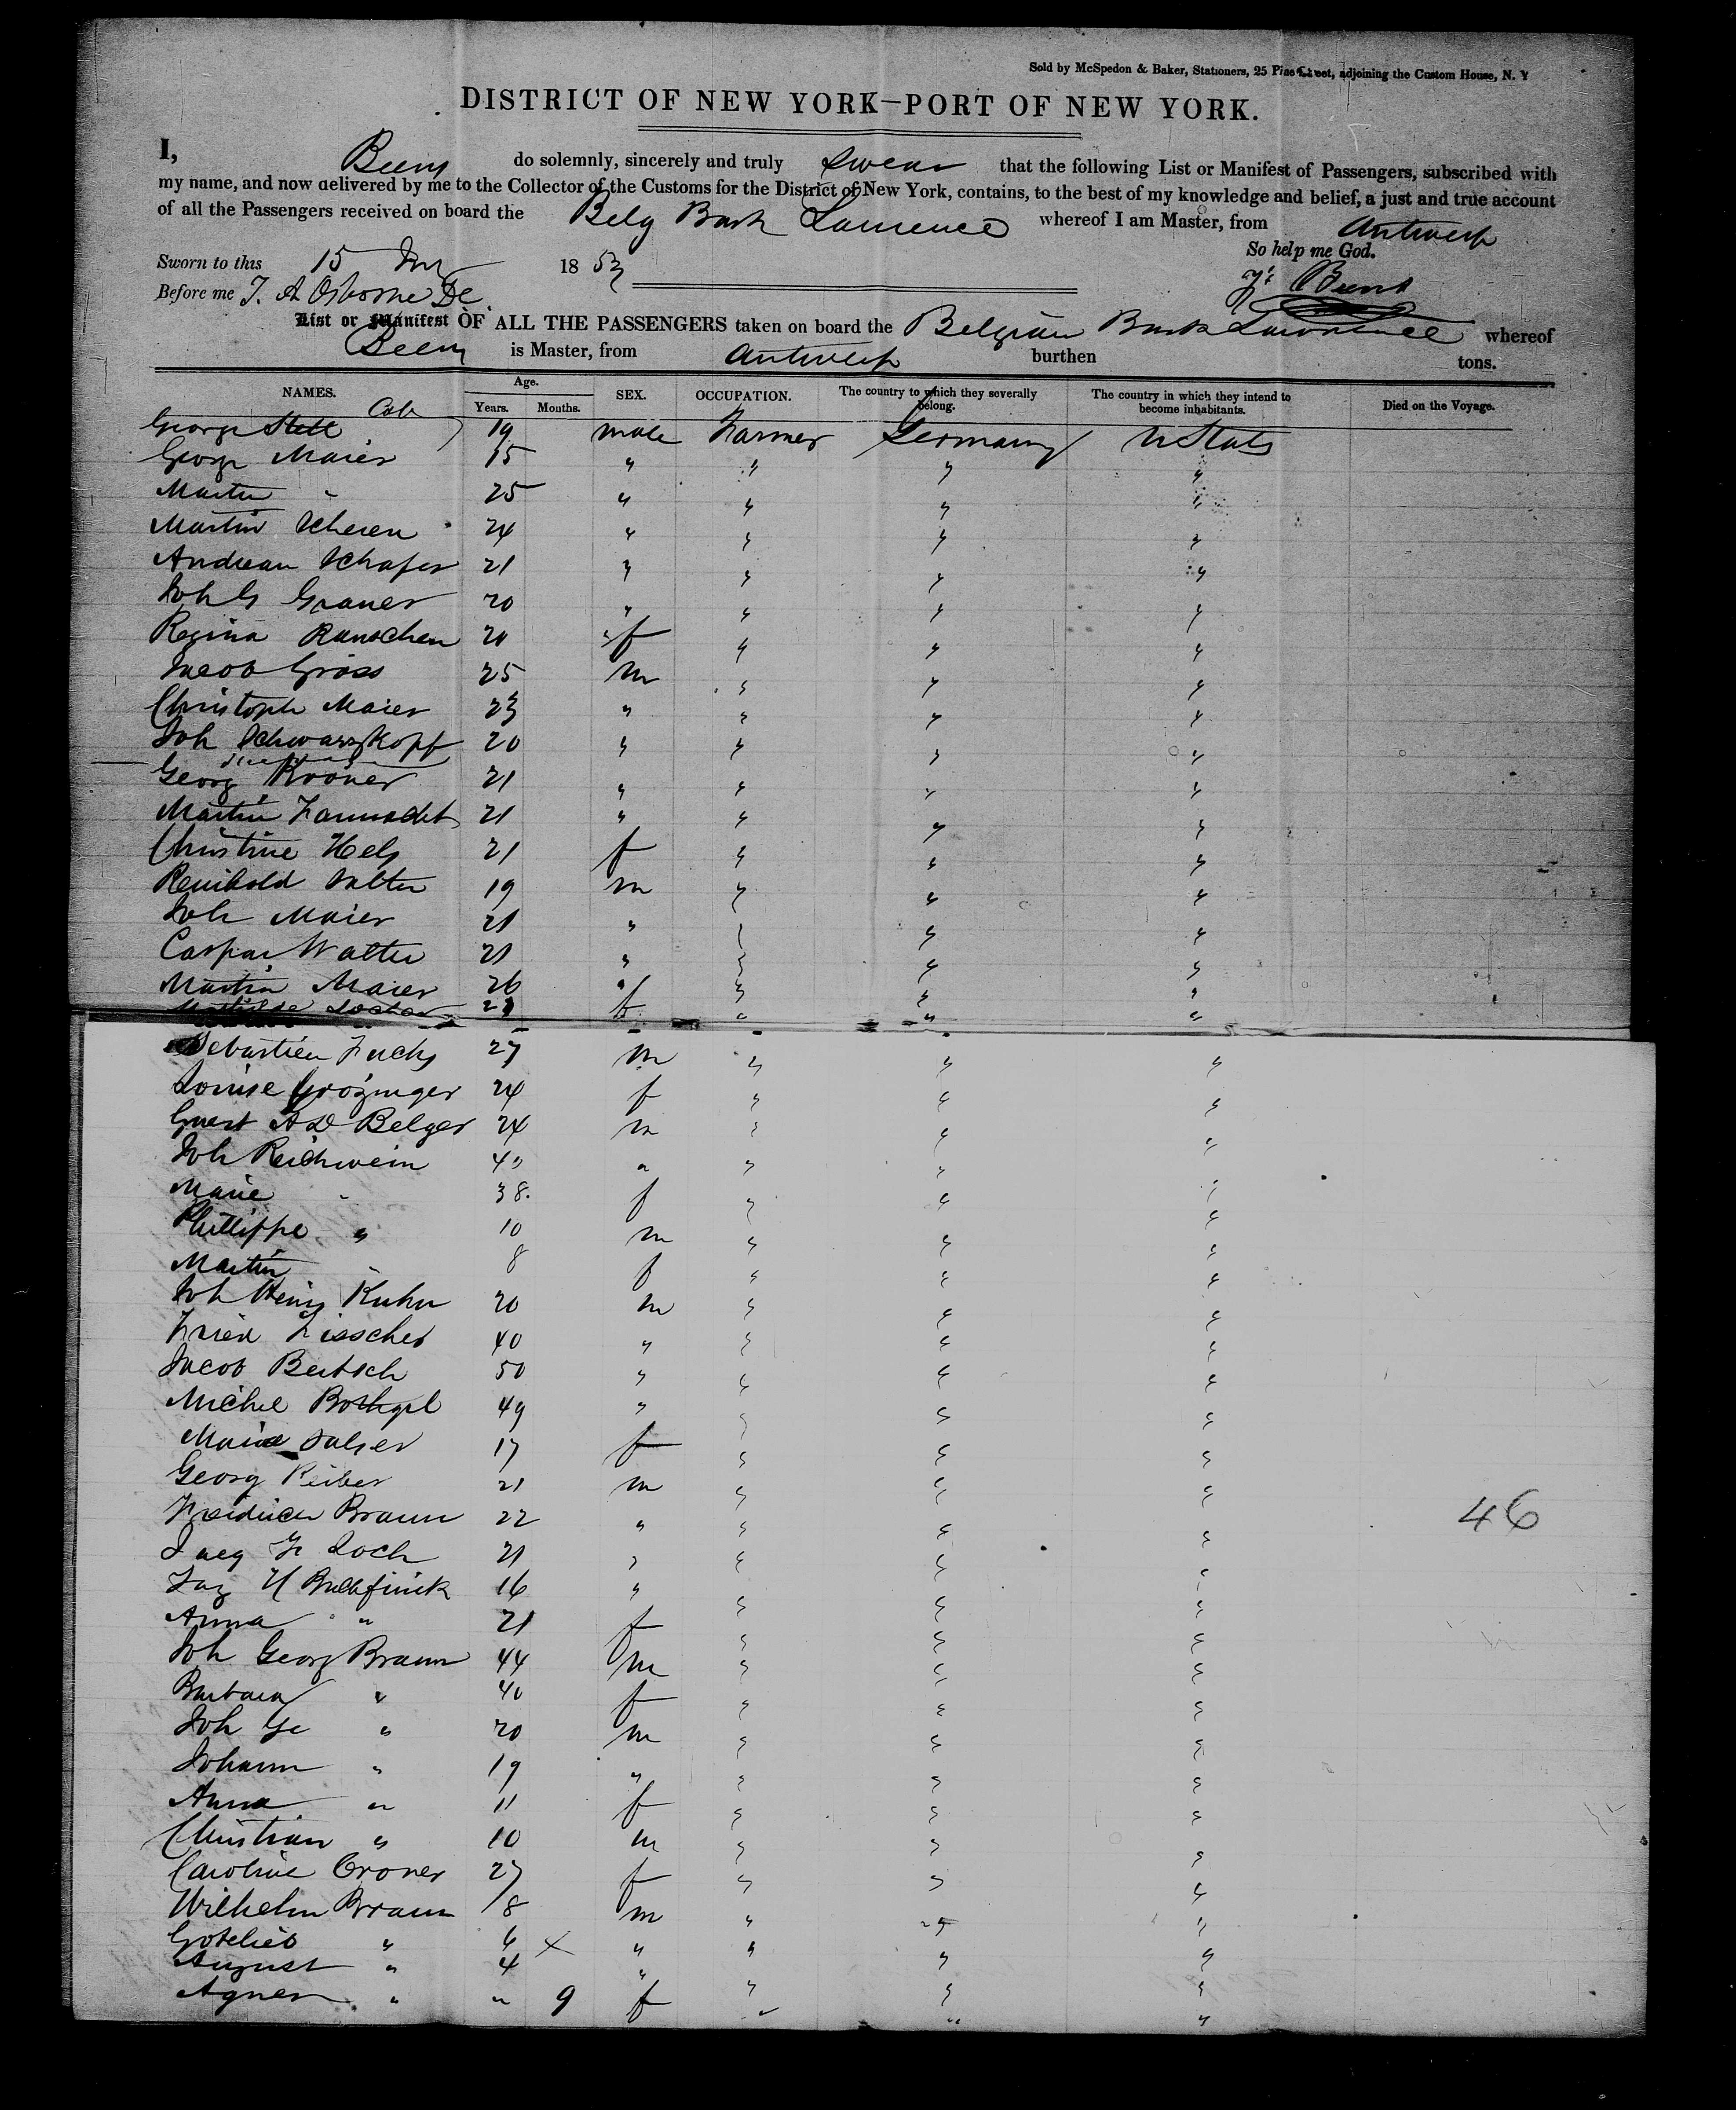 Sold by McSpedon & Baker, Stationers, 25 Pine Street, adjoining the Custom House, N. Y
DISTRICT OF NEW YORK—PORT OF NEW YORK.
I, do solemnly, sincerely and truly swear that the following List or Manifest of Passengers, subscribed with
my name, and now delivered by me to the Collector of the Customs for the District of New York, contains, to the best of my knowledge and belief, a just and true account
of all the Passengers received on board the Belg Bark Laurence whereof I am Master, from Antwerp
So help me God.
Sworn to this 15 1853
Before me J. A Osborne DC
List or Manifest OF ALL THE PASSENGERS taken on board the Belgian Bark Lawrence whereof
is Master, from Antwerp burthen tons.
NAMES. Age. Years. Months. SEX. OCCUPATION. The country to which they severally belong. The country in which they intend to become inhabitants. Died on the Voyage.
Cab
George 19 male Farmer Germany U States
George Maier 15 " " " "
Martin " 25 " " " "
Martin 24 " " " "
Andreas Schafer 21 " " " "
Joh G Graner 20 " " " "
Regina 20 f " " "
Jacob Gross 25 m " " "
Christoph Maier 23 " " " "
Joh Schwarzkopf 20 " " " "
Georg 21 " " " "
Martin 21 " " " "
Christine 21 f " " "
Reinhold 19 m " " "
Joh Maier 21 " " " "
Caspar Walter 21 " " " "
Martin Maier 26 " " " "
f " " "
Sebastien Fuchs 27 m " " "
Louise Grozinger 24 f " " "
A D Belger 24 m " " "
Joh Reichwein " " " "
Marie " 38 f " " "
Phillippe " 10 m " " "
Martin " 8 f " " "
Joh Henry Kuhn 20 m " " "
Fried Fisscher 40 " " " "
Jacob Beitsch 50 " " " "
Michel 49 " " " "
Marie Salser 17 f " " "
Georg Reiber 21 m " " "
Freidrich Braun 22 " " " "
46
Loch 21 " " " "
16 " " " "
Anna " 21 f " " "
Joh Georg Braun 44 m " " "
Barbara " 40 f " " "
Joh Ge " 20 m " " "
Johann " 19 " " " "
Anna " 11 f " " "
Christian " 10 m " " "
Caroline Croner 27 f " " "
Wilhelm Braun 8 m " " "
Gotelieb " 6 x " " " "
August " 4 " " " "
Agnes " " 9 f " " "